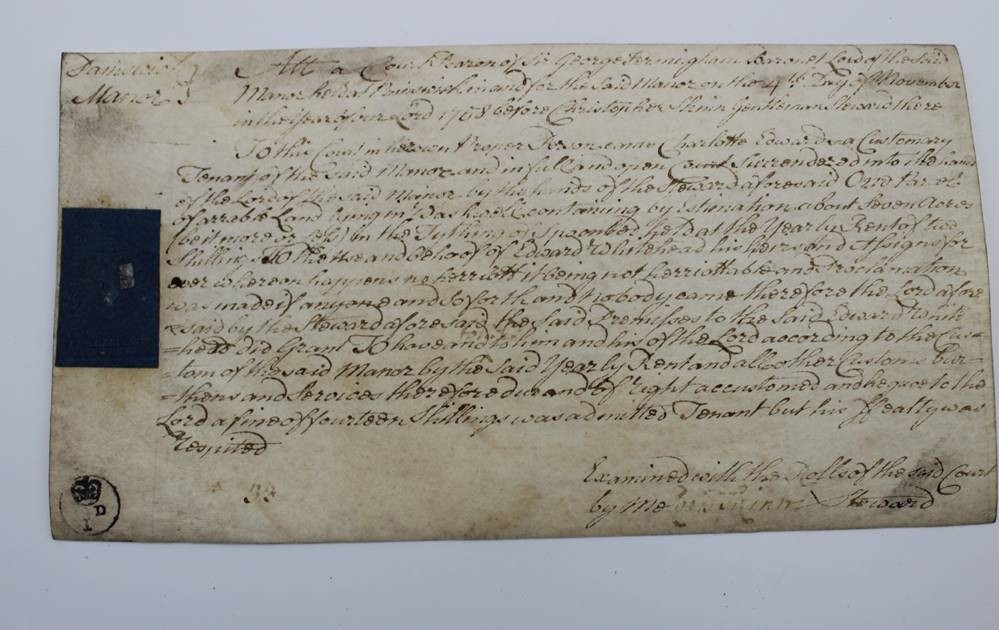 Painswick
Manor
Att a Court Baron of Sir George Jerningham Baronet Lord of the Said
Manor held at Painswick in and for the Said Manor on the 4th Day of November
in the Year of our Lord 1758 before Christopher Gentleman Steward there
To this Court in her own Proper Person came Charlotte Edwards a Customary
Tenant of the Said Manor and in full and open Court Surrendered into the hands
of the Lord of the said Manor by the hands of the Steward aforesaid One Parcel
of arrable Land lying in containing by Estimation about Seven Acres
(be it more or less) in the Tything of held at the Yearly Rent of two
Shillings To the use and behoof of Edward Whitehead his heirs and Assigns for
ever whereon happens no herriott it being not herriottable and Proclamation
was made if anyone and So forth and nobody came therefore the Lord afore
=said by the Steward aforesaid the said Premisses to the Said Edward White
=head Did Grant To have and to him and his of the Lord according to the Cus=
=tom of the said Manor by the Said Yearly Rent and all other Customs bur=
=thens and Services therefore due and of right accustomed and he gave to the
Lord a fine of fourteen Shillings was admitted Tenant but his ffealty was
Respited
Examined with the Rolls of the said Court
by Me Steward
34
I D